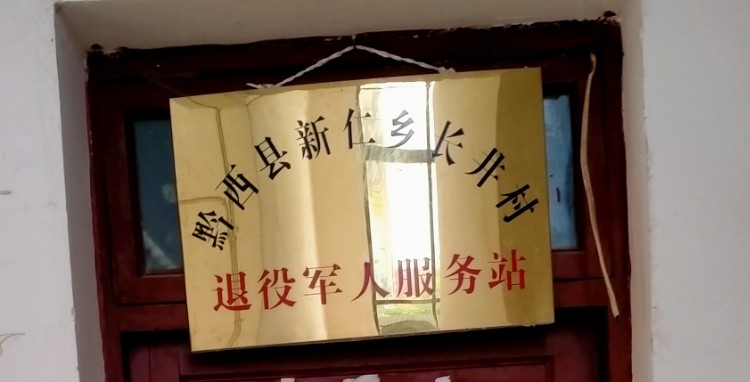 黔西县新仁乡长井村
退役军人服务站